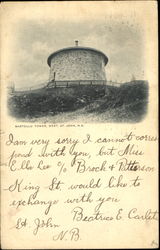 MARTELLO TOWER, WEST, ST. JOHN, N.B.
I am very sorry I cannot corres
pond with you, but Miss
Ella Lee c/o Brock & Patterson
King St. would like to
exchange with you
Beatrice E.
St. John
N.B.